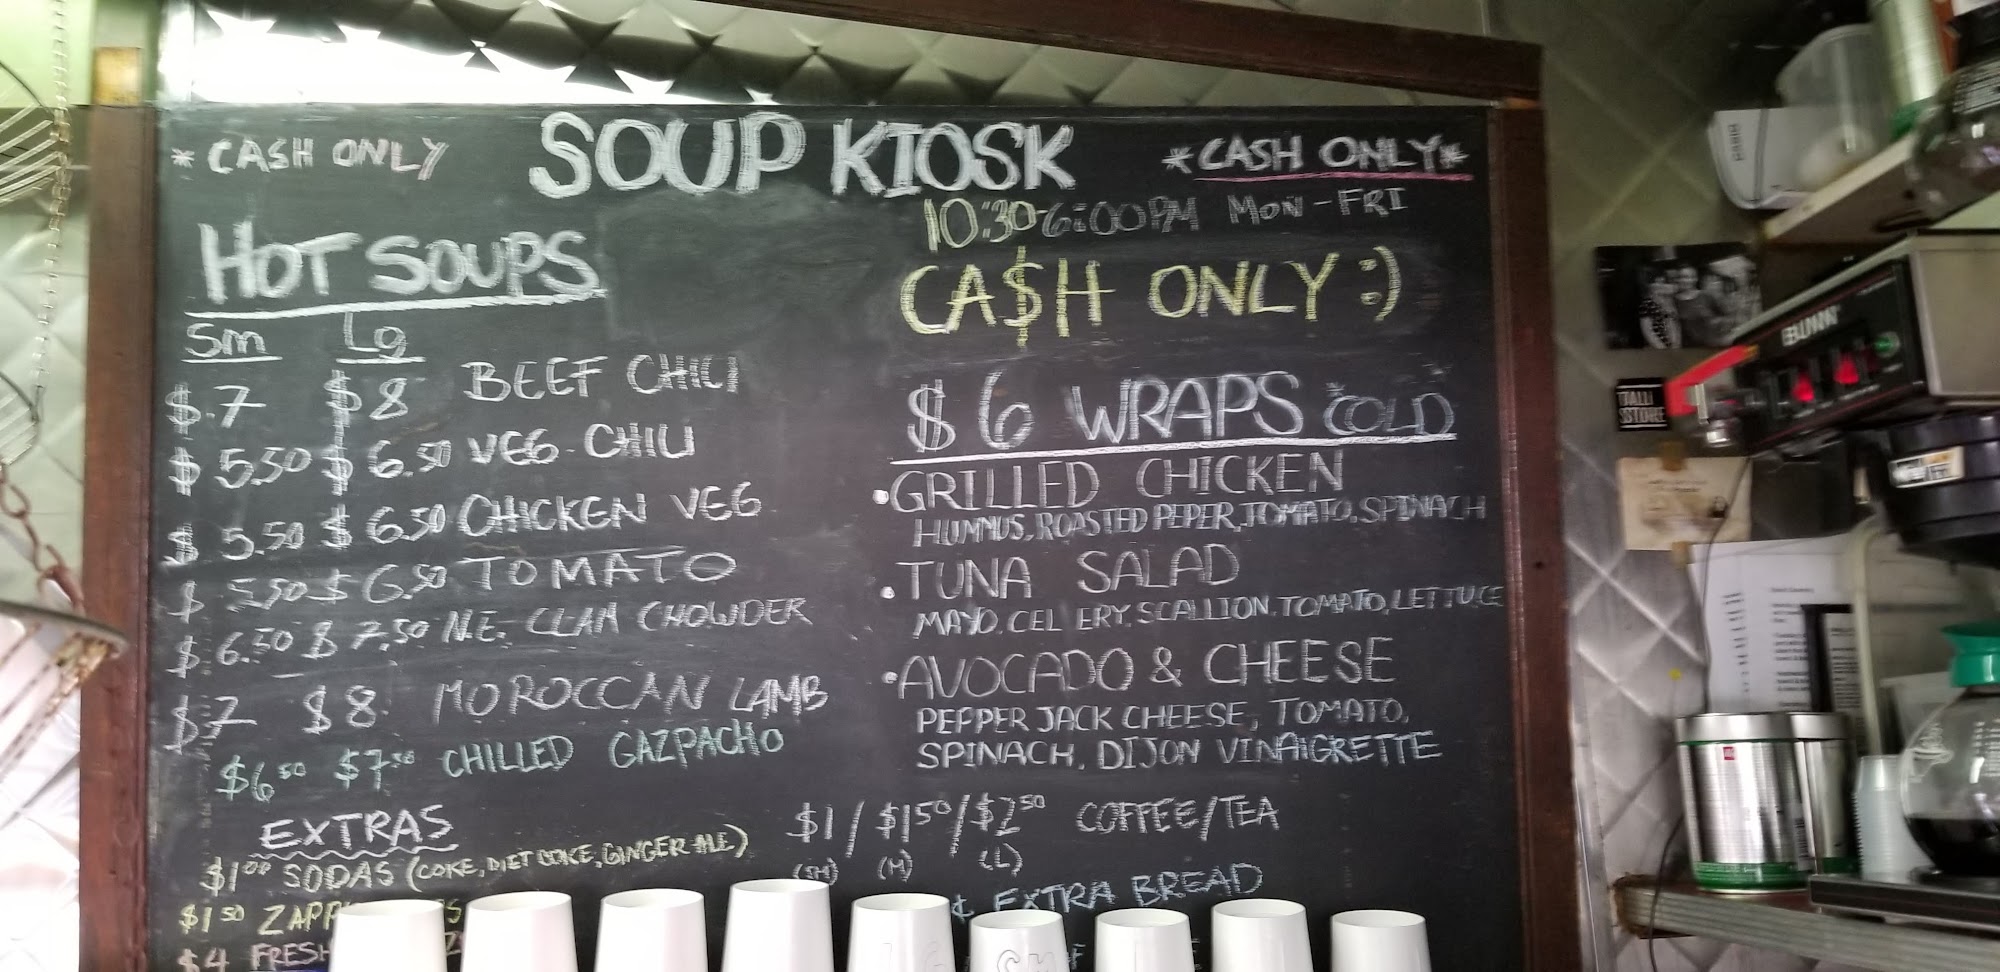 * CASH ONLY
SOUP KIOSK
*CASH ONLY*
10:30-6:00PM MON-FRI
CA$H ONLY :)
HOT SOUPS
Sm Lg
$7 $8 BEEF CHILI
$5.50 $6.50 VEG CHILI
$5.50 $6.50 CHICKEN VEG
$5.50 $6.50 TOMATO
$6.50 $7.50 N.E. CLAM CHOWDER
$7 $8 MOROCCAN LAMB
$6.50 $7.50 CHILLED GAZPACHO
EXTRAS
$1.00 SODAS (COKE, DIET COKE, GINGER ALE)
$1.50 ZAPP
$4 FRESH
$6 WRAPS COLD
•GRILLED CHICKEN
HUMMUS, ROASTED PEPER, TOMATO, SPINACH
•TUNA SALAD
MAYO, CELERY, SCALLION, TOMATO, LETTUCE
•AVOCADO & CHEESE
PEPPER JACK CHEESE, TOMATO,
SPINACH, DIJON VINAIGRETTE
$1/$1.50/$2.50 COFFEE/TEA
(SM) (M) (L)
¢ EXTRA BREAD
BUNN